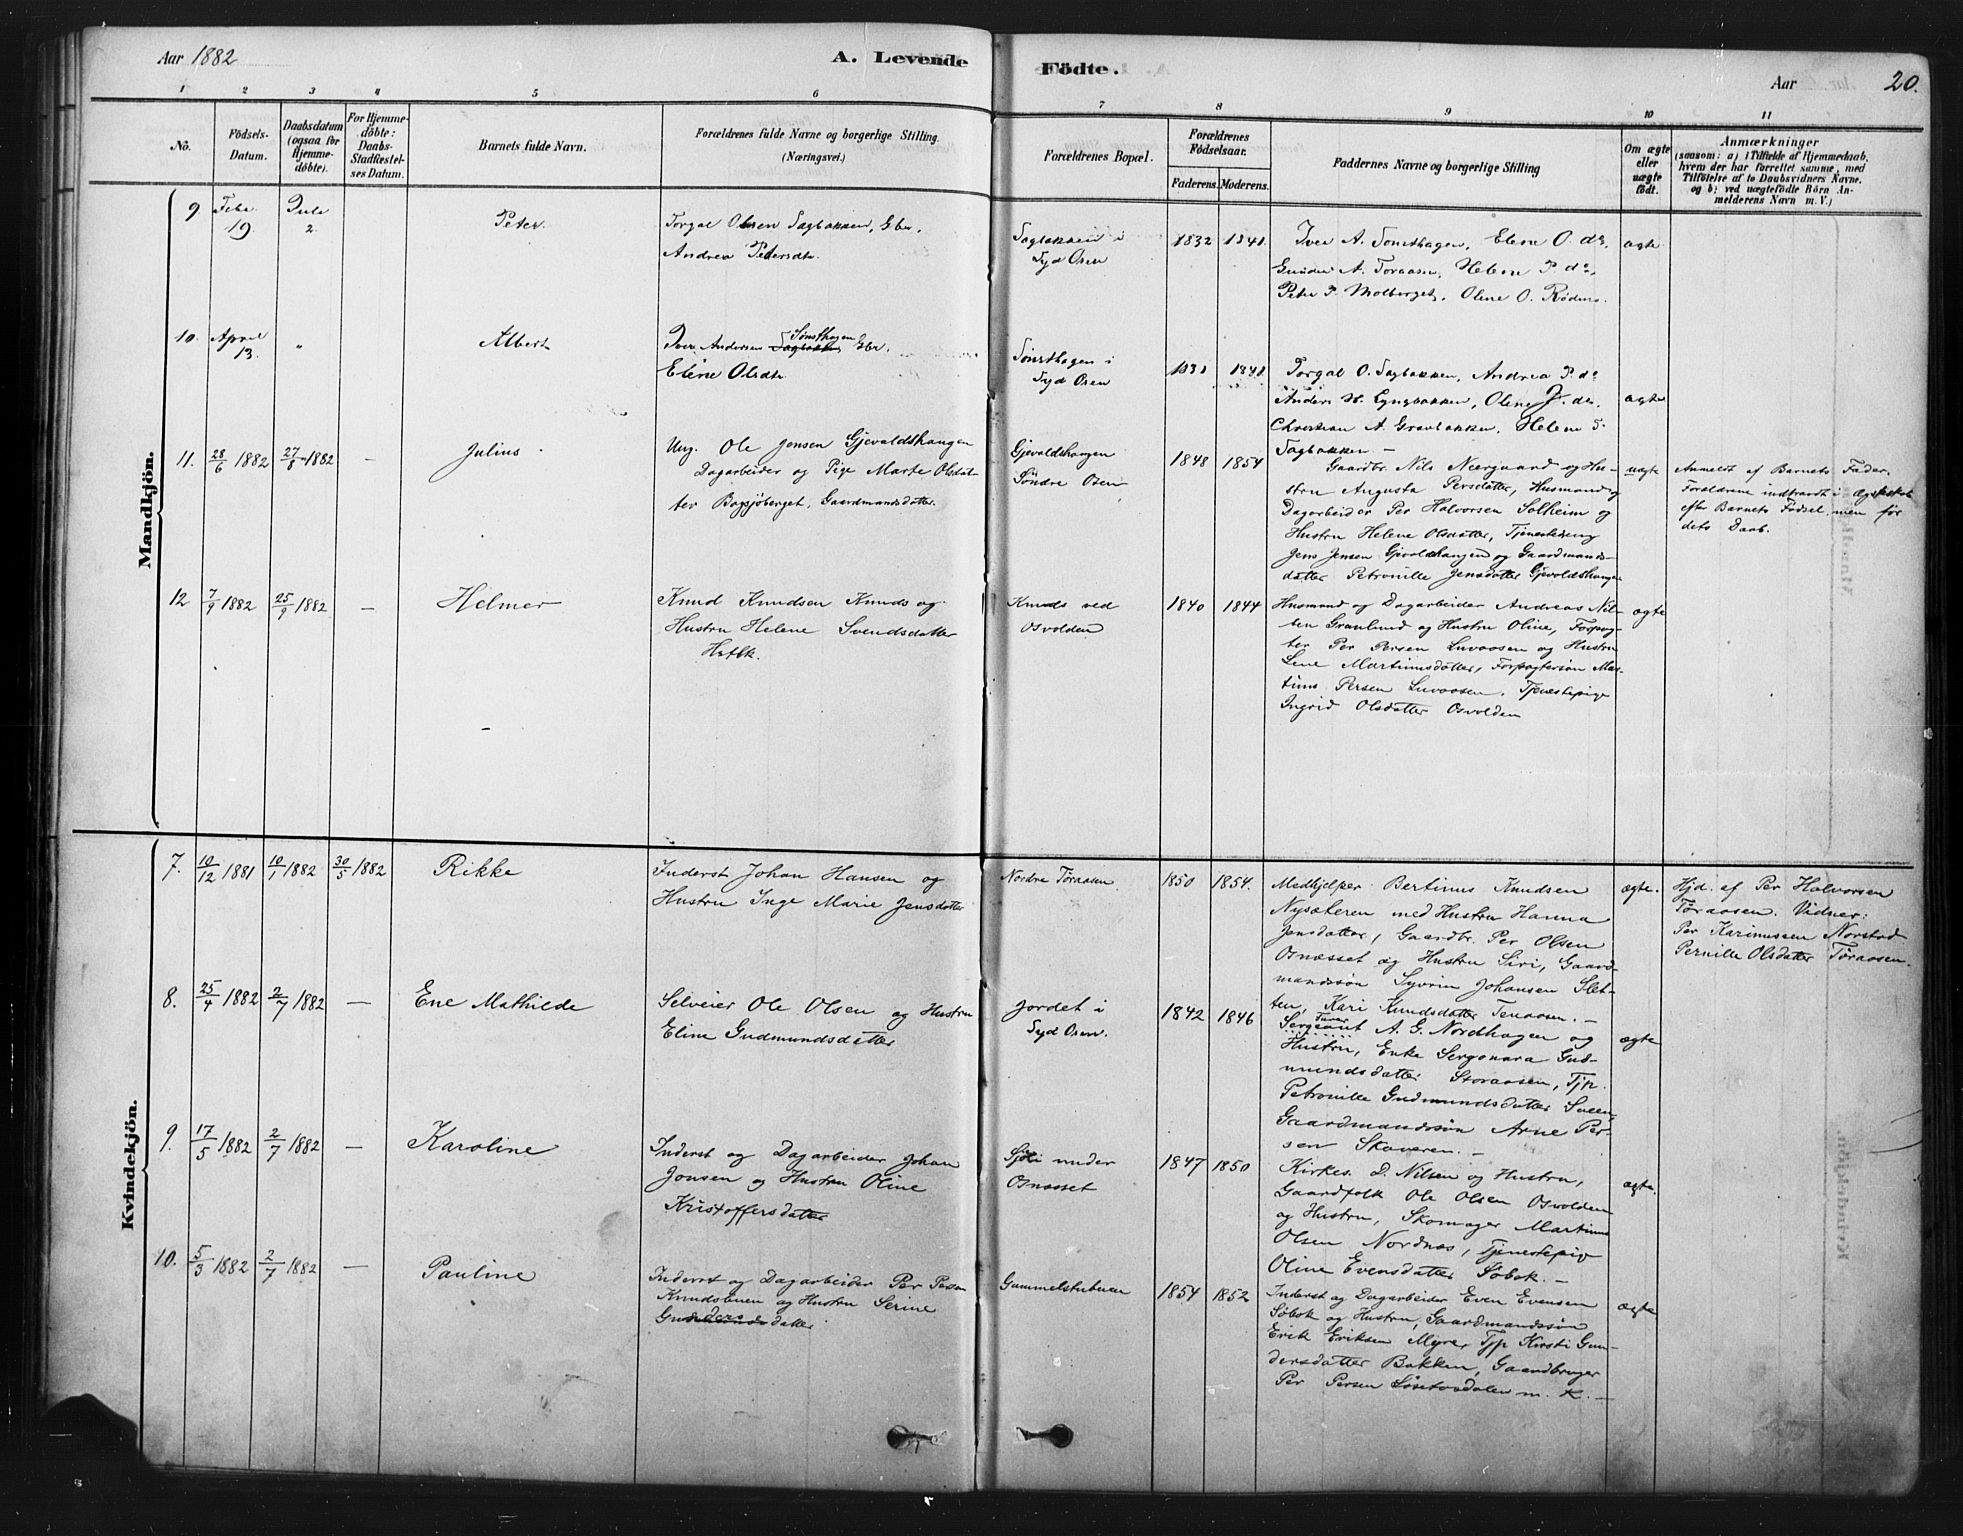 Aar 1882
A. Levende
Födte.
Aar
20.
1 2 3 4 5 6 7 8 9 10 11
No.
Födsels-
Datum.
Daabsdatum
(ogsaa for
Hjemme-
döbte).
For Hjemme-
döbte:
Daabs-
Stadfæstel-
ses Datum.
Barnets fulde Navn.
Forældrenes fulde Navne og borgerlige Stilling.
(Næringsvei.)
Forældrenes Bopæl.
Forældrenes
Födselsaar.
Faderens.
Moderens.
Faddernes Navne og borgerlige Stilling
Om ægte
eller
uægte
födt.
Anmærkninger
(saasom: a) i Tilfælde af Hjemmedaab,
hvem der har forrettet samme, med
Tilföielse af to Daabsvidners Navne,
og b) ved uægtefödte Börn An-
melderens Navn m. V.)
Mandkjön.
9 Feb. 19. Jule 2.
Peter
Torgal Olsen Sagbakken, Gbr.
Andrea Pedersdtr.
Sagbakken i
Syd Osen
1832 1841
Iver A. Sønsthagen, Elene O. do.
Gunder A. Toraasen, Helene P. do.
Peter P. Molberget, Olene O. Røden.
ægte
10. April 13. "
Albert
Iver Andersen Sagbakken Sønsthagen Gbr.
Elene Olsdtr
Sønsthagen i
Syd Osen
1831 1841
Torgal O. Sagbakken, Andrea P. do
Anders H. Lyngbakken, Olene J. do.
Christian A. Gravbakken, Helene T.
Sagbakken. –
ægte
11. 28/6 1882 27/8 1882 –
Julius
Ung. Ole Jensen Gjevaldshaugen
Dagarbeider og Pige Marte Olsdat-
ter Bagsjøberget, Gaardmandsdatter.
Gjevaldshaugen
Søndre Osen
1848 1854
Gaardbr. Nils Nærgaard og Hu-
stru Augusta Persdatter, Husmand og
Dagarbeider Per Halvorsen Solheim og
Hustru Helene Olsdatter, Tjenestedreng
Jens Jensen Gjevaldshaugen og Gaardmands-
datter Petronille Jensdatter Gjevoldshaugen
uægte
Anmeldt af Barnets Fader.
Forældrene indtraadt i Ægteskab
efter Barnets Fødsel, men før
dets Daab.
12 7/9 1882 25/9 1882 –
Helmer
Knud Knudsen Knuds og
Hustru Helene Svendsdatter
Knuds ved
Osvolden
1840 1844
Husmand og Dagarbeider Andreas Nil-
sen Graulund og Hustru Oline, Forpag-
ter Per Persen Luvaasen og Hustru
Lene Martinusdatter, Forpagtersøn Mar-
tinus Persen Luvaasen, Tjenestepige
Ingrid Olsdatter Osvolden
ægte
Kvindekjön.
7. 10/12 1881 10/1 1882 30/5 1882
Rikke
Inderst Johan Hansen og
Hustru Inge Marie Jensdatter
Nordre Tøraasen
1850 1854.
Medhjelper Bertinus Knudsen
Nysæteren med Hustru Hanna
Jensdatter, Gaardbr. Per Olsen
Osnæsset og Hustru Siri, Gaard-
mandssøn Syvrin Johansen Slet-
ten, Kari Knudsdatter Tenaasen. –
ægte.
Hjd. af Per Halvorsen
Tøraasen. Vidner:
Per Karinussen Norstad
Pernille Olsdatter Tøraasen.
8. 25/4 1882 2/7 1882 –
Ene Mathilde
Selveier Ole Olsen og Hustru
Eline Gudmundsdatter
Jordet i
Syd Osen.
1842 1846
Sergeant A. G. Nordhagen og
Hustru, Enke Sergonara Gud-
mundsdatter Storaasen, Tjp.
Petronille Gudmundsdatter Sueen,
Gaardmandssøn Arne Per-
sen Skaveren. –
ægte
9. 17/5 1882 2/7 1882 –
Karoline
Inderst og Dagarbeider Johan
Jonsen og Hustru Oline
Kristoffersdatter
Sjøli under
Osnæsset
1847 1850
Kirkes. D. Nilsen og Hustru,
Gaardfolk Ole Olsen Osvolden
og Hustru, Skomager Martinus
Olsen Nordnæs, Tjenestepige
Oline Evensdatter Søbok. –
ægte.
10. 5/3 1882 2/7 1882 –
Pauline
Inderst og Dagarbeider Per Persen
Knudsbuen og Hustru Serine
Gundersdatter
Gammelstubuen
1854 1852
Inderst og Dagarbeider Even Evensen
Søbok og Hustru, Gaardmandssøn
Erik Eriksen Myre, Tjp Kirsti Gun-
dersdatter Bakken, Gaardbruger
Per Persen Søsetødalen m. K. –
ægte